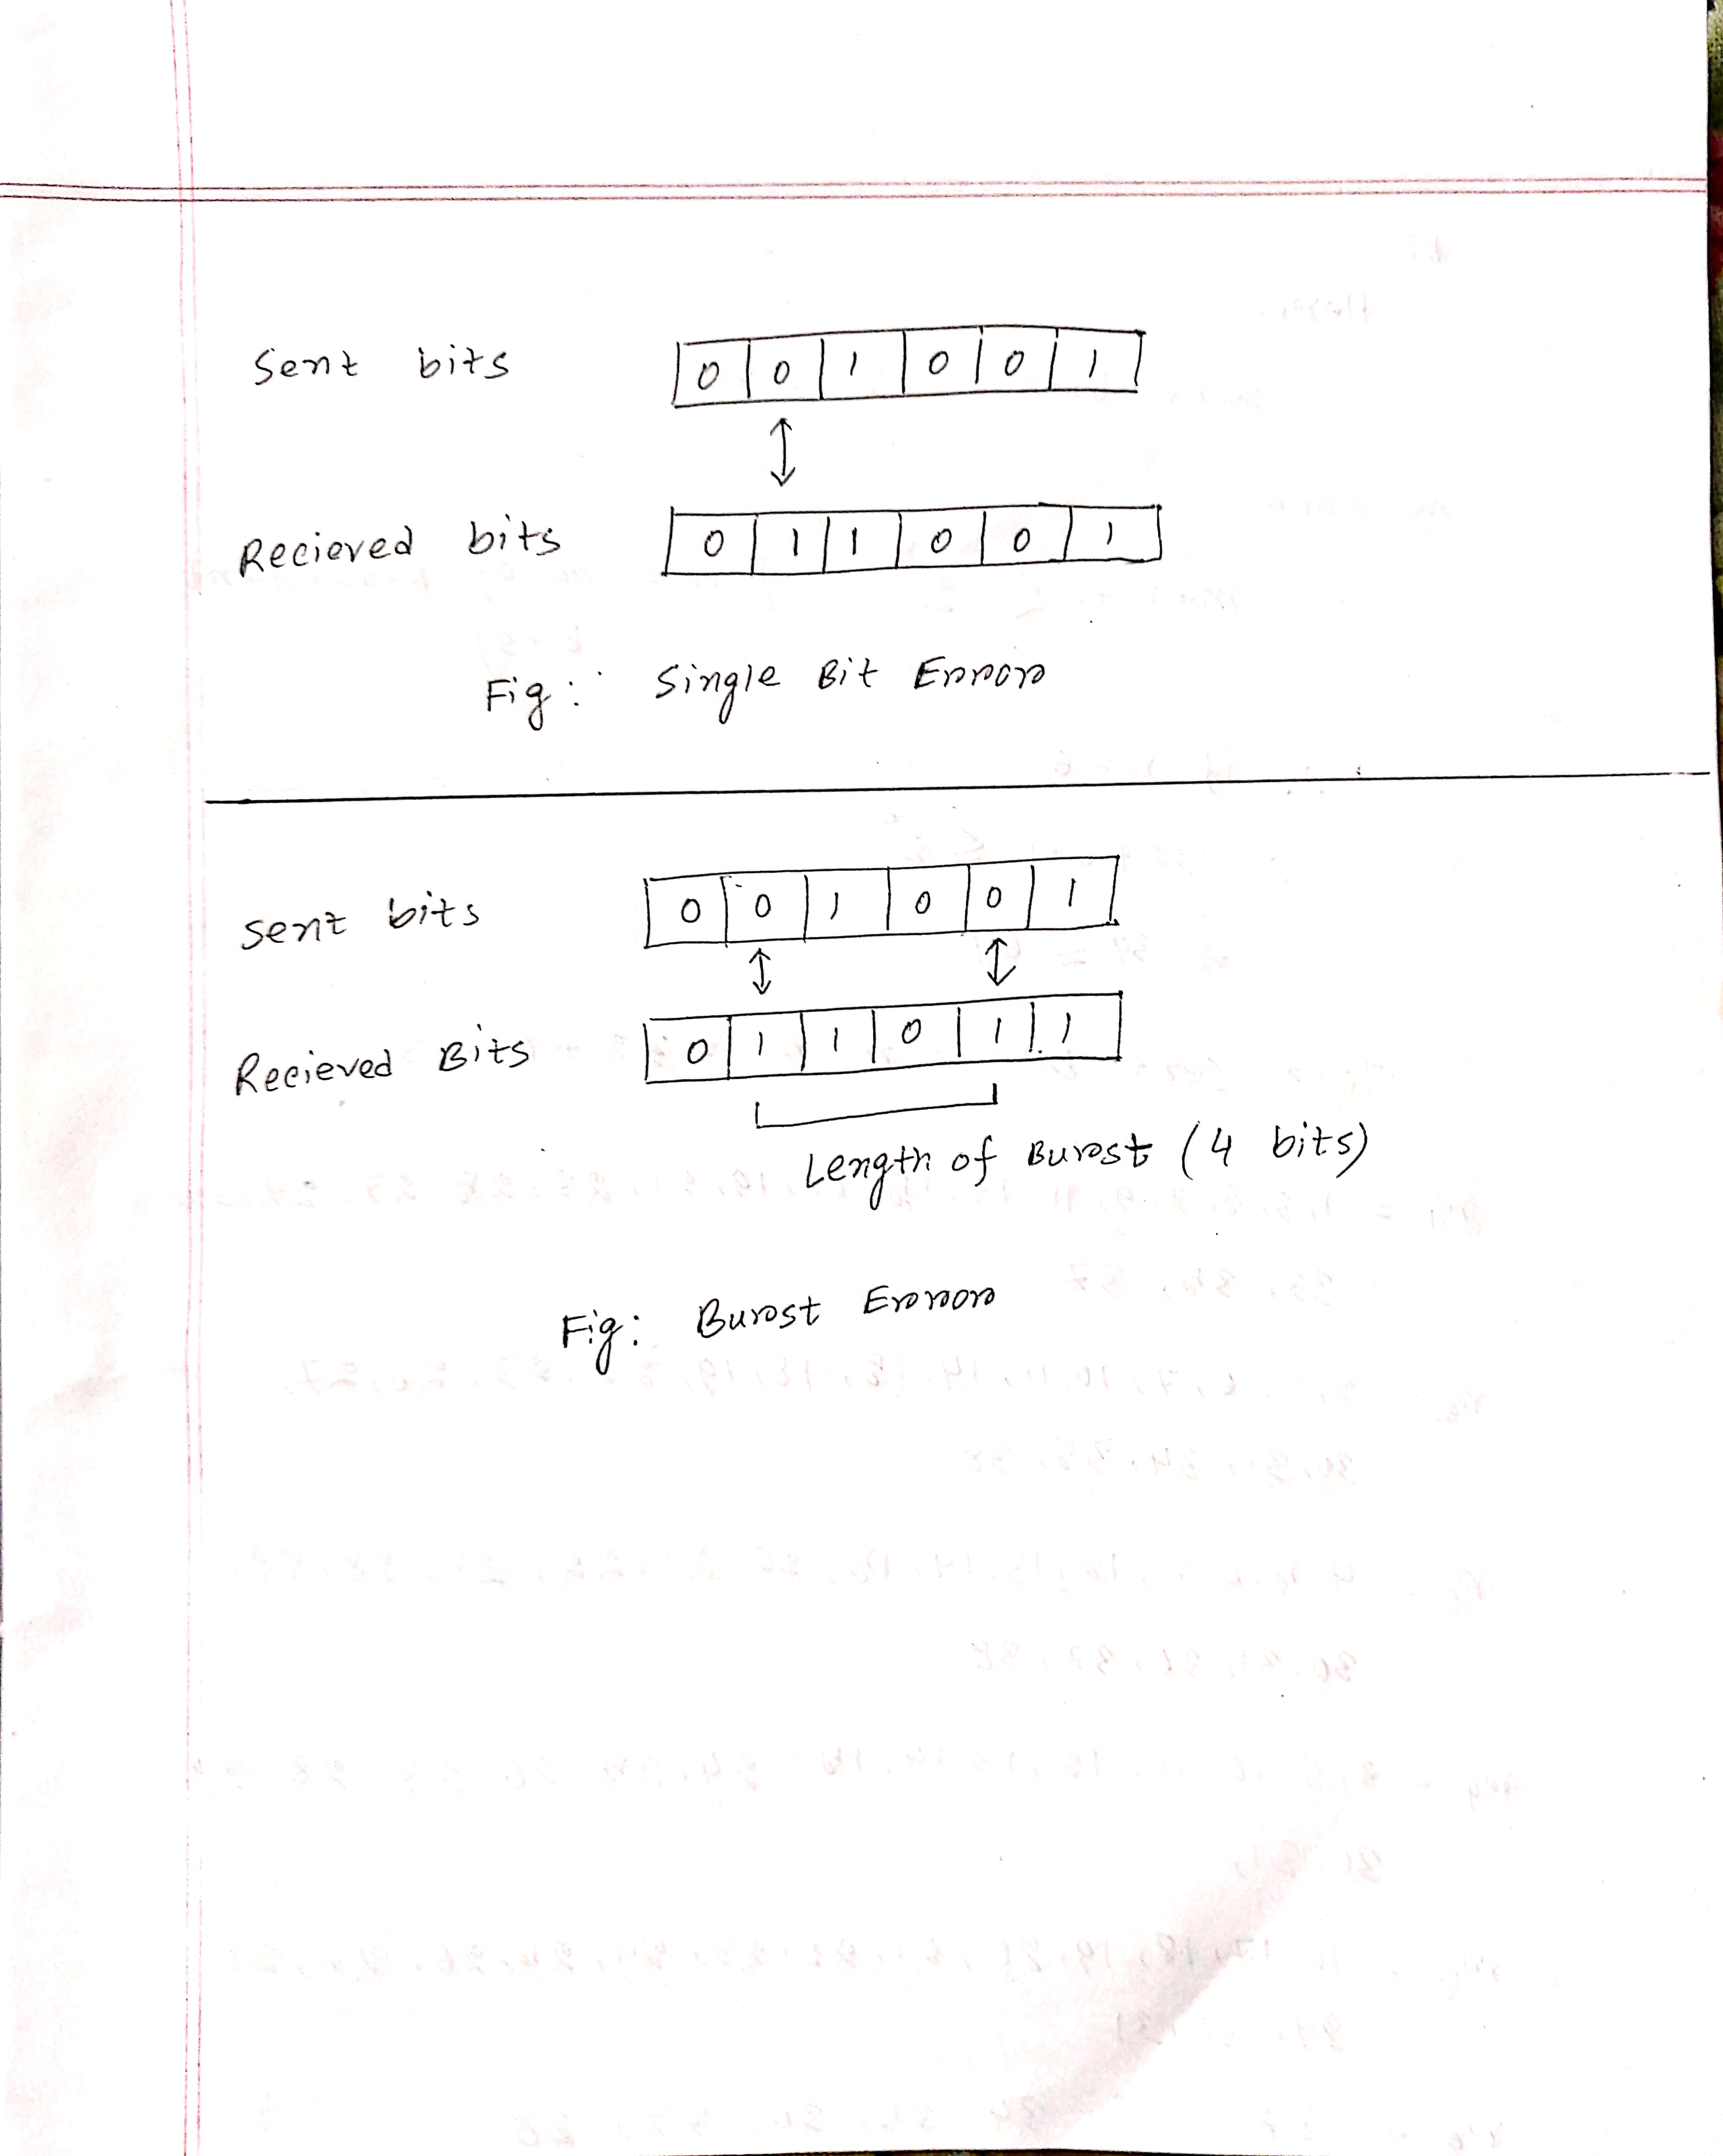 Sent bits 0 0 1 0 0 1
Recieved bits 0 1 1 0 0 1
Fig: Single Bit Error
sent bits 0 0 1 0 0 1
Recieved Bits 0 1 1 0 1 1
Length of Burst (4 bits)
Fig: Burst Error